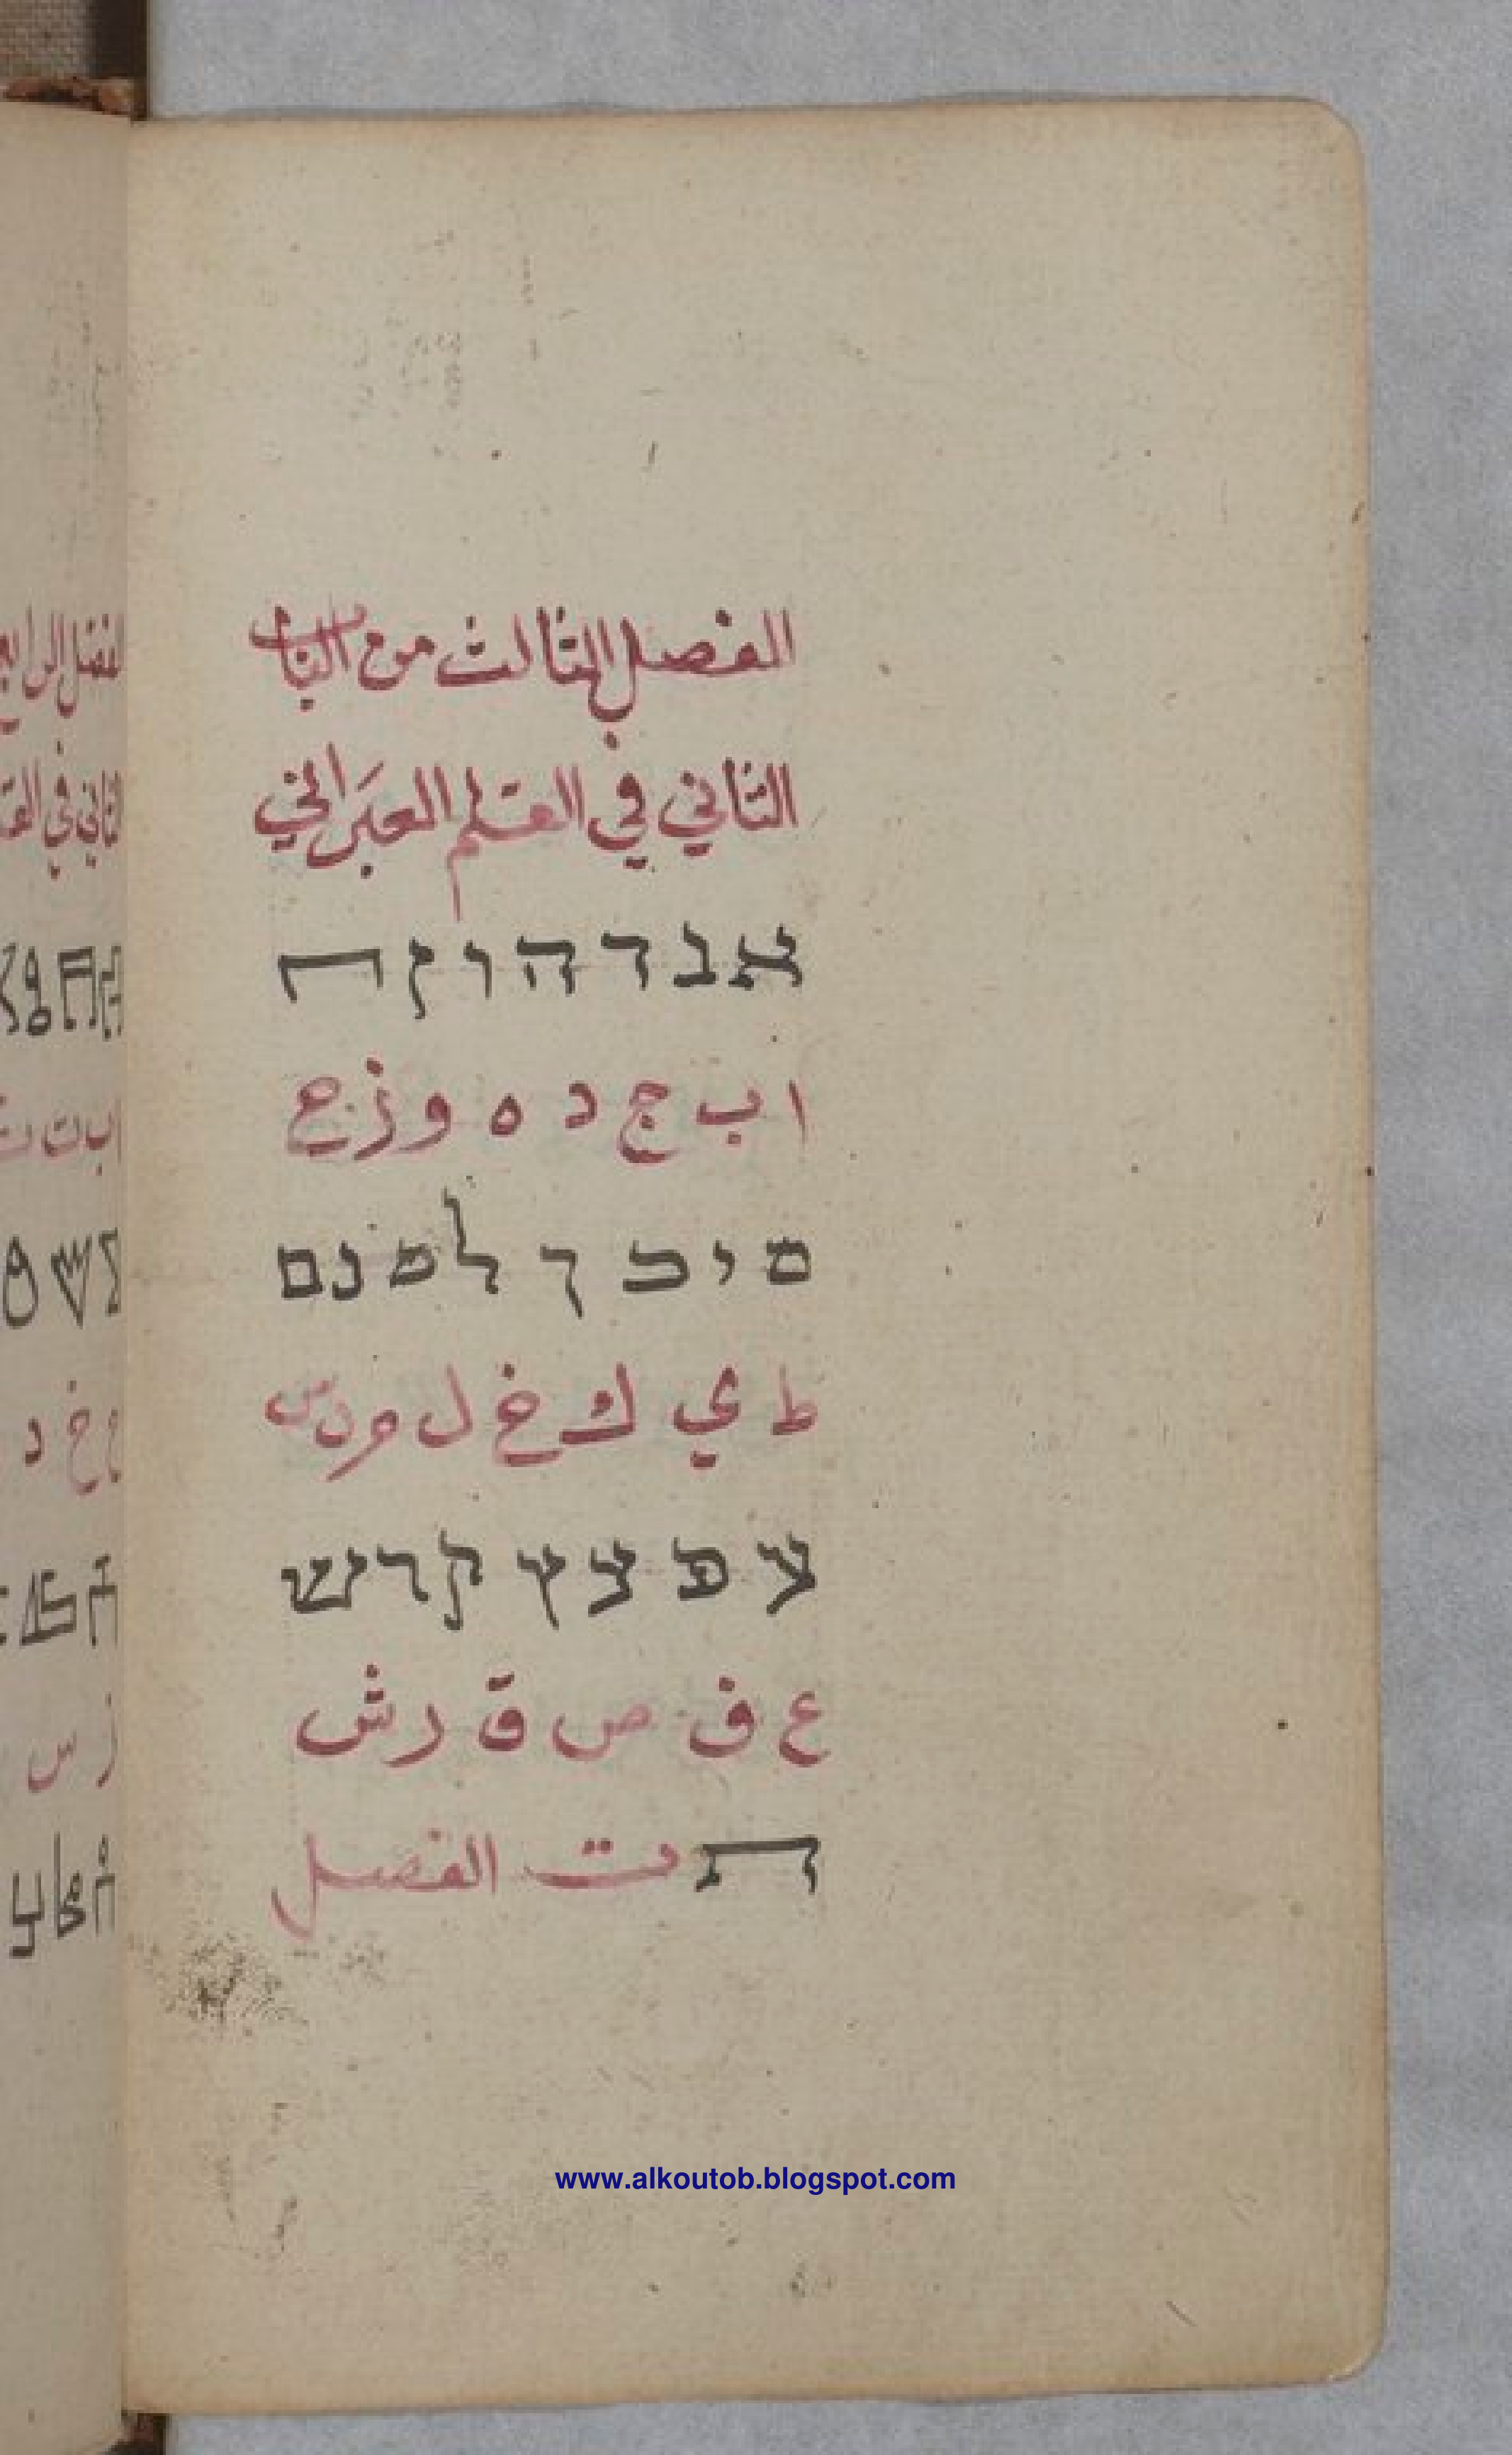 الفصل الثالث من الباب
الثاني في القلم العبراني
א ב ד ה ו ז ח
ا ب ج د ه و ز ح
ם י כ ך ל מ נ ם
ط ي ك خ ل م ن س
ע פ צ ץ ק ר ש
ع ف ص ق ر ش
ת ت الفصل
www.alkoutob.blogspot.com